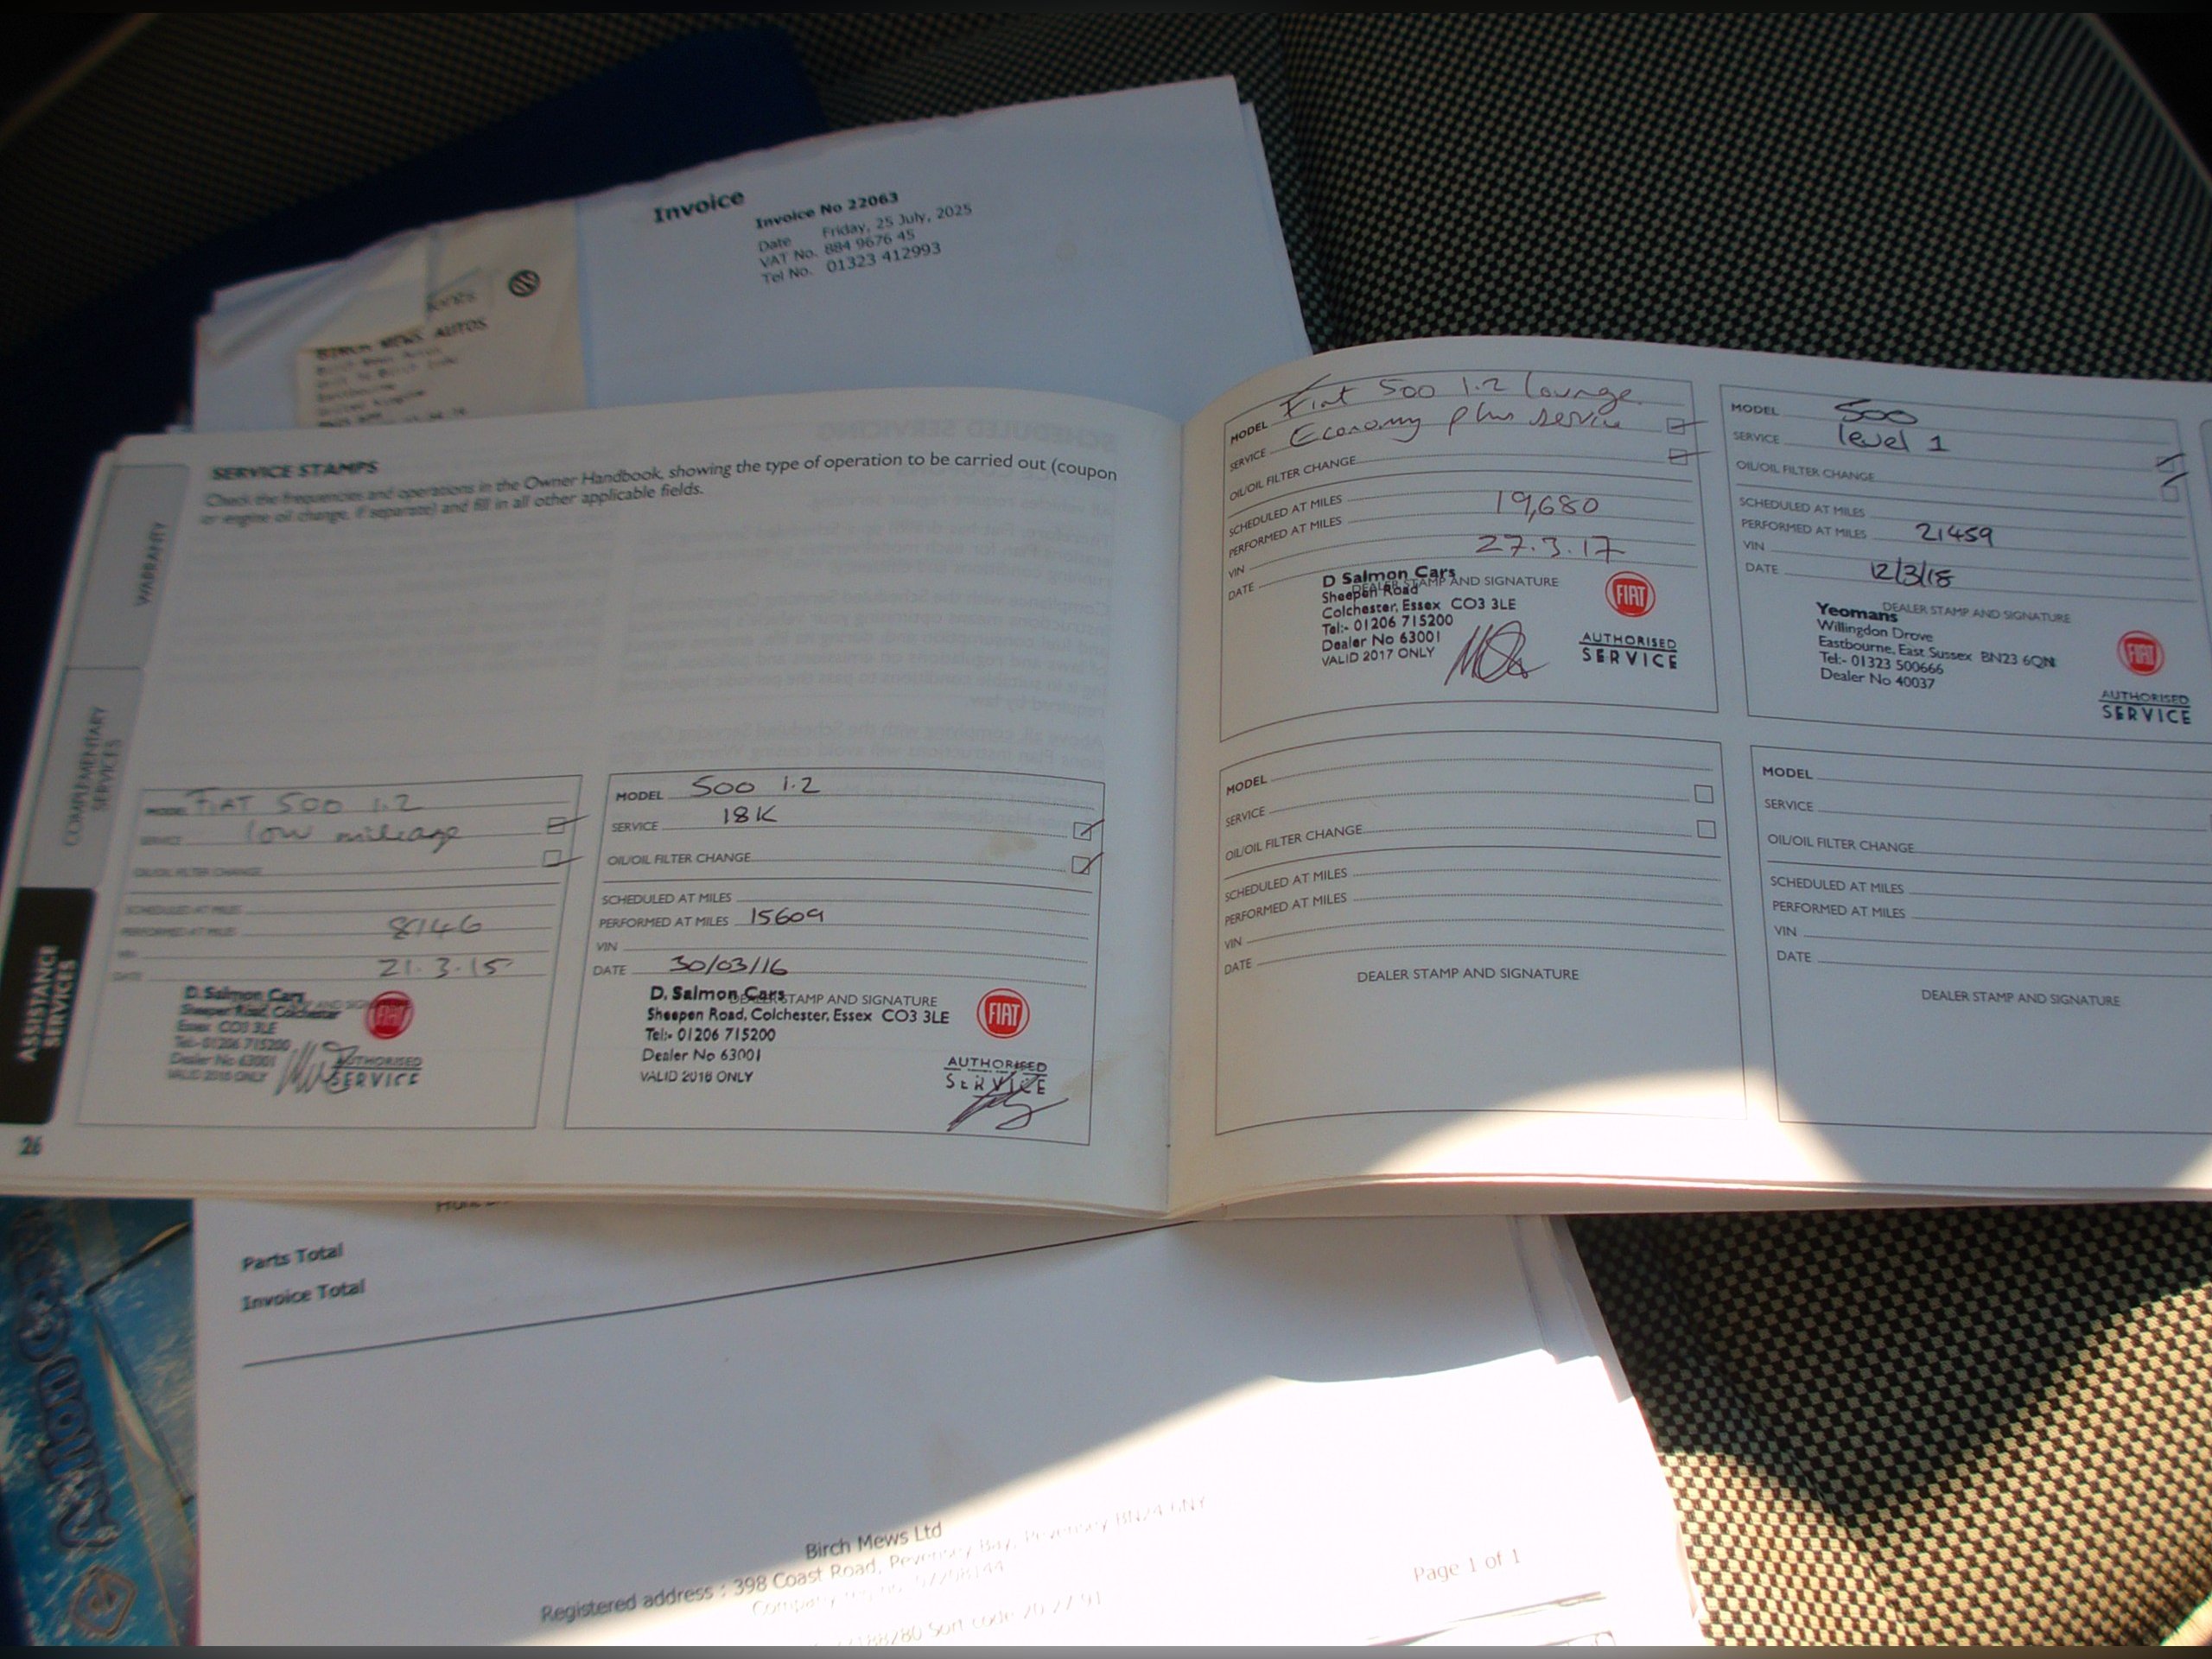 Invoice
Invoice No 22063
Date Friday, 25 July, 2025
VAT No. 884 9676 45
Tel No. 01323 412993
BIRCH MEWS AUTOS
SERVICE STAMPS
Check the frequencies and operations in the Owner Handbook, showing the type of operation to be carried out (coupon
or engine oil change, if separate) and fill in all other applicable fields.
WARRANTY
COMPLEMENTARY
SERVICES
ASSISTANCE
SERVICES
26
MODEL FIAT 500 1.2
SERVICE low mileage
OIL/OIL FILTER CHANGE
SCHEDULED AT MILES
PERFORMED AT MILES 8146
VIN
DATE 21.3.15
D. Salmon Cars
Sheepen Road, Colchester
Essex CO3 3LE
Tel:- 01206 715200
Dealer No 63001
FIAT
AUTHORISED
SERVICE
MODEL 500 1.2
SERVICE 18K
OIL/OIL FILTER CHANGE
SCHEDULED AT MILES
PERFORMED AT MILES 15609
VIN
DATE 30/03/16
DEALER STAMP AND SIGNATURE
D. Salmon Cars
Sheepen Road, Colchester, Essex CO3 3LE
Tel:- 01206 715200
Dealer No 63001
VALID 2016 ONLY
FIAT
AUTHORISED
SERVICE
MODEL Fiat 500 1.2 lounge
SERVICE Economy plus service
OIL/OIL FILTER CHANGE
SCHEDULED AT MILES
PERFORMED AT MILES 19,680
VIN
DATE 27.3.17
DEALER STAMP AND SIGNATURE
D Salmon Cars
Sheepen Road
Colchester, Essex CO3 3LE
Tel:- 01206 715200
Dealer No 63001
VALID 2017 ONLY
FIAT
AUTHORISED
SERVICE
MODEL 500
SERVICE level 1
OIL/OIL FILTER CHANGE
SCHEDULED AT MILES
PERFORMED AT MILES 21459
VIN
DATE 12/3/18
DEALER STAMP AND SIGNATURE
Yeomans
Willingdon Drove
Eastbourne, East Sussex BN23 6QN
Tel:- 01323 500666
Dealer No 40037
FIAT
AUTHORISED
SERVICE
MODEL
SERVICE
OIL/OIL FILTER CHANGE
SCHEDULED AT MILES
PERFORMED AT MILES
VIN
DATE
DEALER STAMP AND SIGNATURE
MODEL
SERVICE
OIL/OIL FILTER CHANGE
SCHEDULED AT MILES
PERFORMED AT MILES
VIN
DATE
DEALER STAMP AND SIGNATURE
Parts Total
Invoice Total
Birch Mews Ltd
Registered address : 398 Coast Road, Pevensey Bay, Pevensey BN24 6NY
Sort code 20 27 91
Page 1 of 1